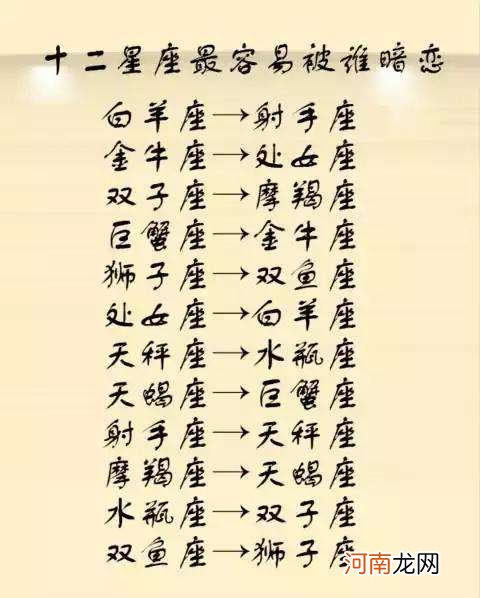 十二星座最容易被谁暗恋
白羊座→射手座
金牛座→处女座
双子座→摩羯座
巨蟹座→金牛座
狮子座→双鱼座
处女座→白羊座
天秤座→水瓶座
天蝎座→巨蟹座
射手座→天秤座
摩羯座→天蝎座
水瓶座→双子座
双鱼座→狮子座
河南龙网